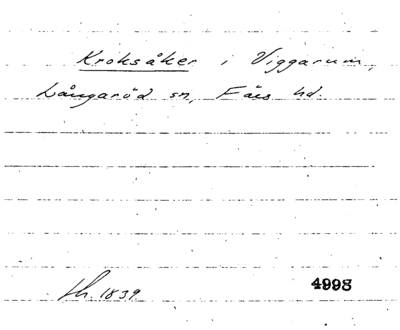 Kroksåker i Viggarum,
Långaröd sn, Färs hd.
lh. 1839
4998